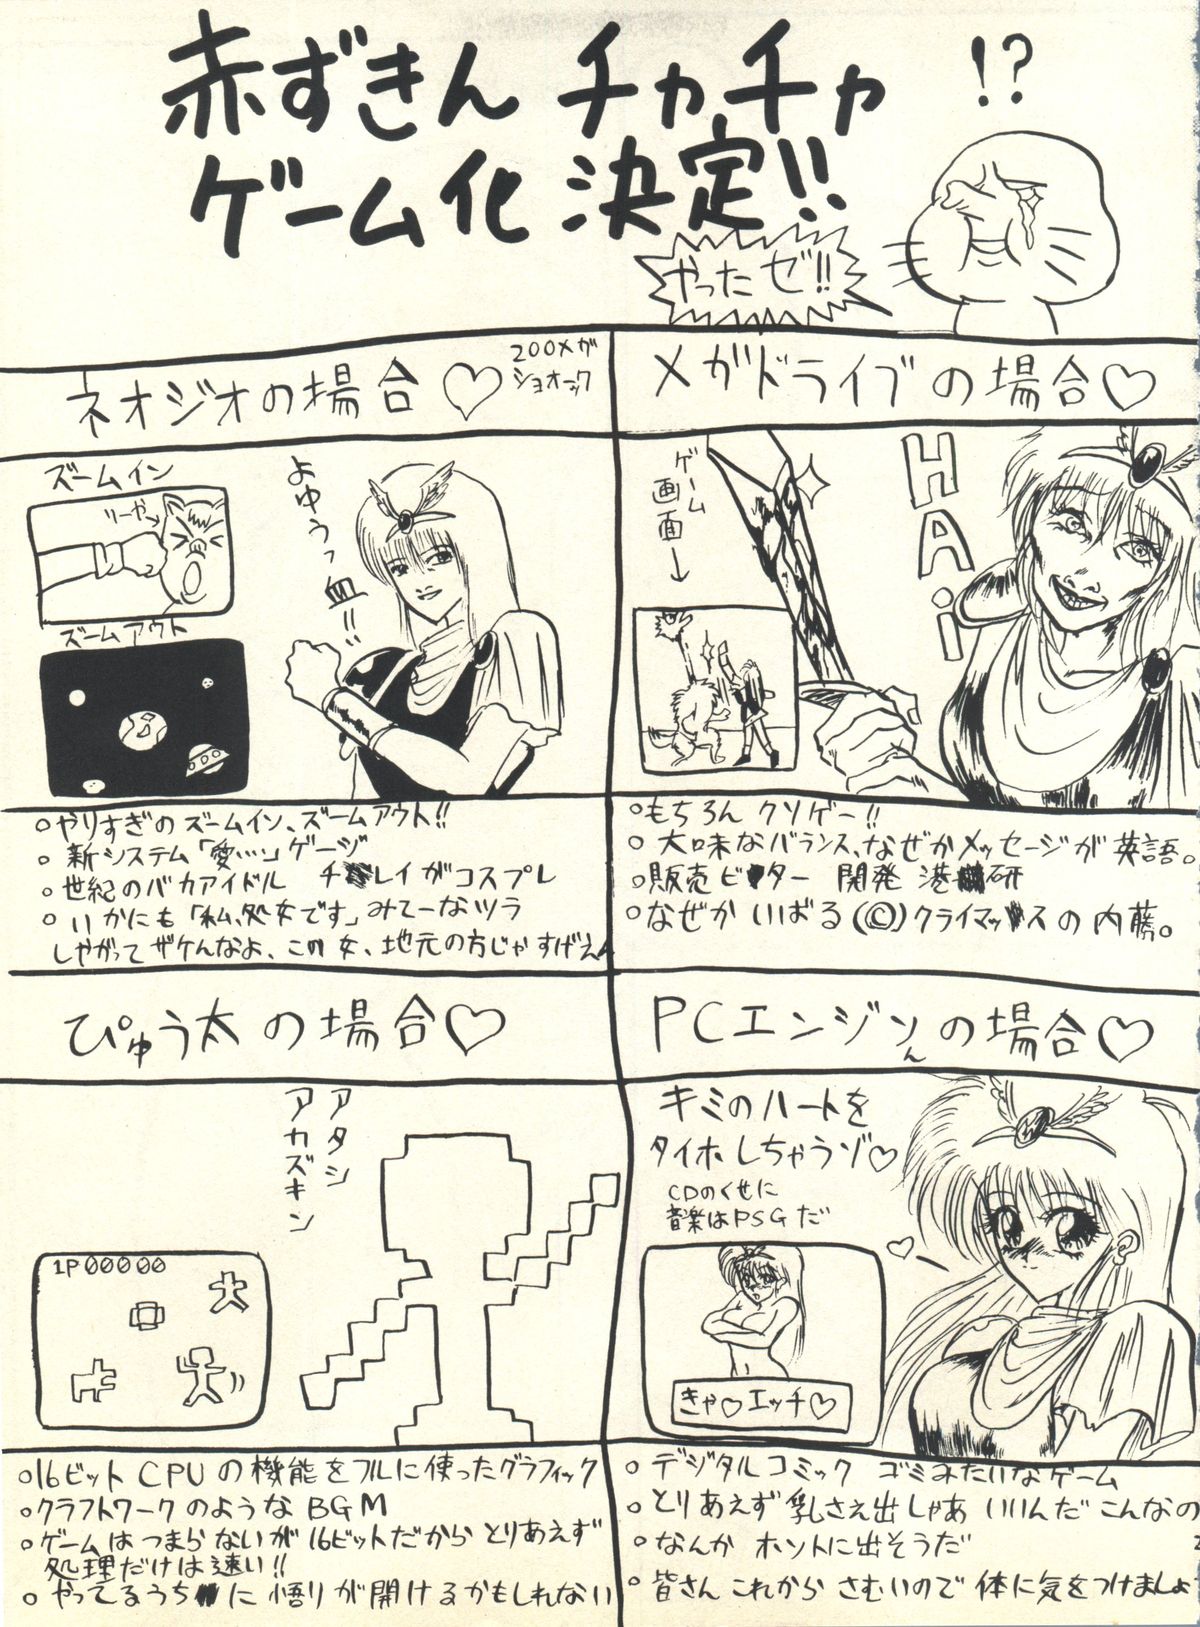 赤ずきん チャチャ
ゲーム化 決定!!
!?
やったゼ!!
ネオジオの場合♡
200メガ
ショオーック
ズームイン
リーヤ→
ズームアウト
よゆうっ血!!
○やりすぎのズームイン、ズームアウト!!
○新システム「愛…」ゲージ
○世紀のバカアイドル チ レイがコスプレ
○いかにも「私、処女です」みてーなツラ
しやがってザケんなよ、この女、地元の方じゃすげえ
メガドライブの場合♡
ゲーム
画面→
HAi
○もちろん クソゲー!!
○大味なバランス、なぜかメッセージが英語。
○販売ビ ター 開発 港 研
○なぜか いばる(©)クライマッ スの内藤。
ぴゅう太の場合♡
アタシ
アカズキン
1P00000
○16ビットCPUの機能をフルに使ったグラフィック
○クラフトワークのようなBGM
○ゲームはつまらないが16ビットだから とりあえず
処理だけは速い!!
○やってるうち に 悟りが開けるかもしれない
PCエンジンの場合♡
ん
キミのハートを
タイホしちゃうゾ♡
CDのくせに
音楽はPSGだ
きゃ♡エッチ♡
○デジタルコミック ゴミみたいなゲーム
○とりあえず乳さえ出しゃあ いいんだ こんなの
○なんか ホントに出そうだ
○皆さん これから さむいので 体に気をつけましょ